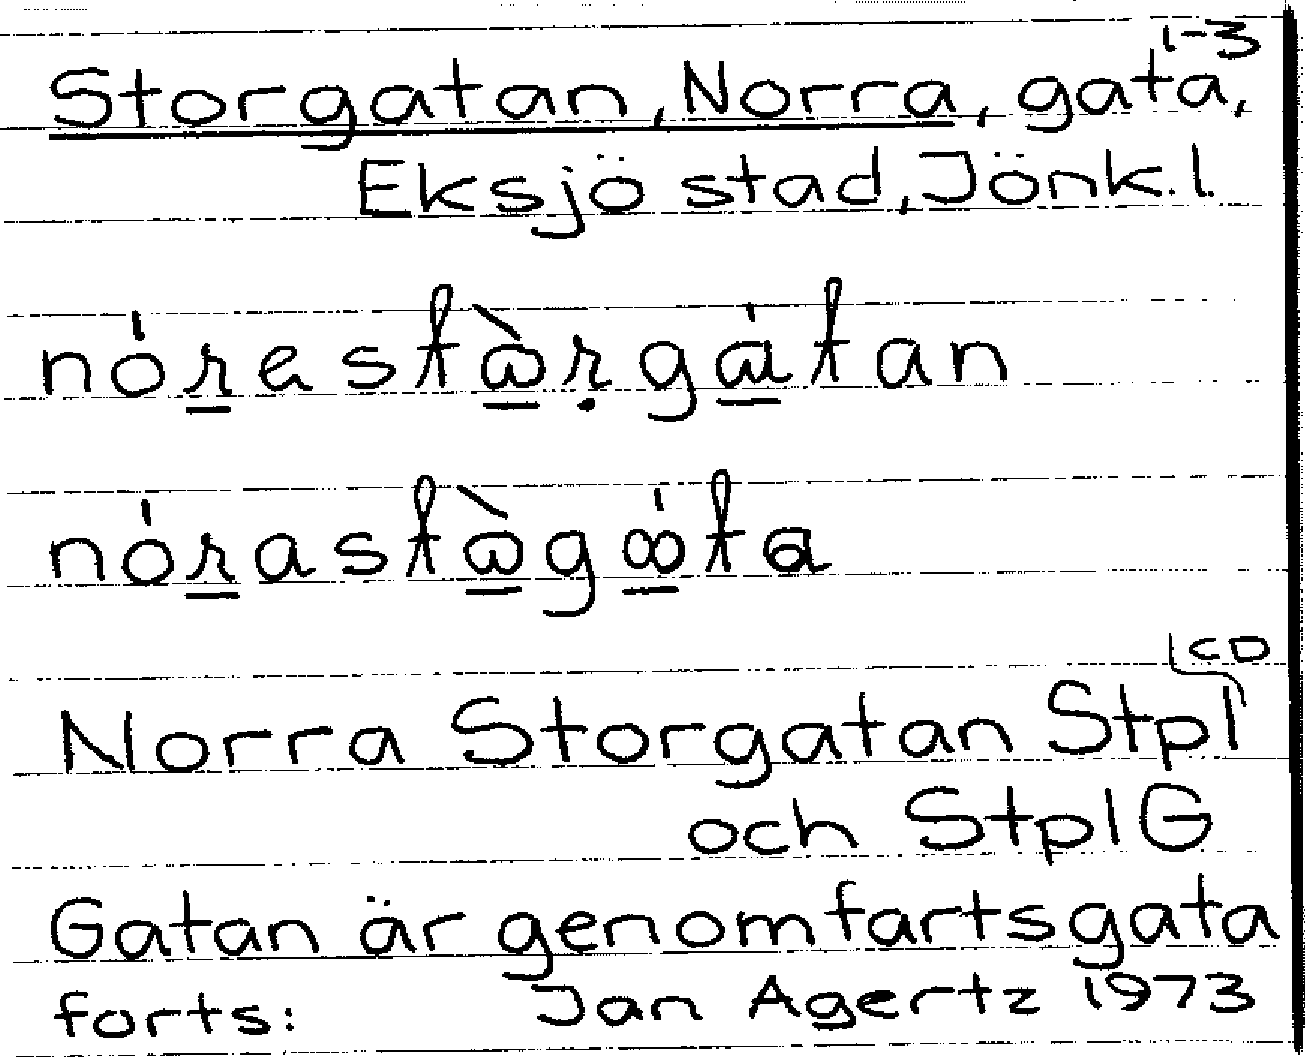 1-3
Storgatan, Norra, gata,
Eksjö stad, Jönk.l.
LCD
Norra Storgatan Stpl
och StplG
Gatan är genomfartsgata
forts: Jan Agertz 1973